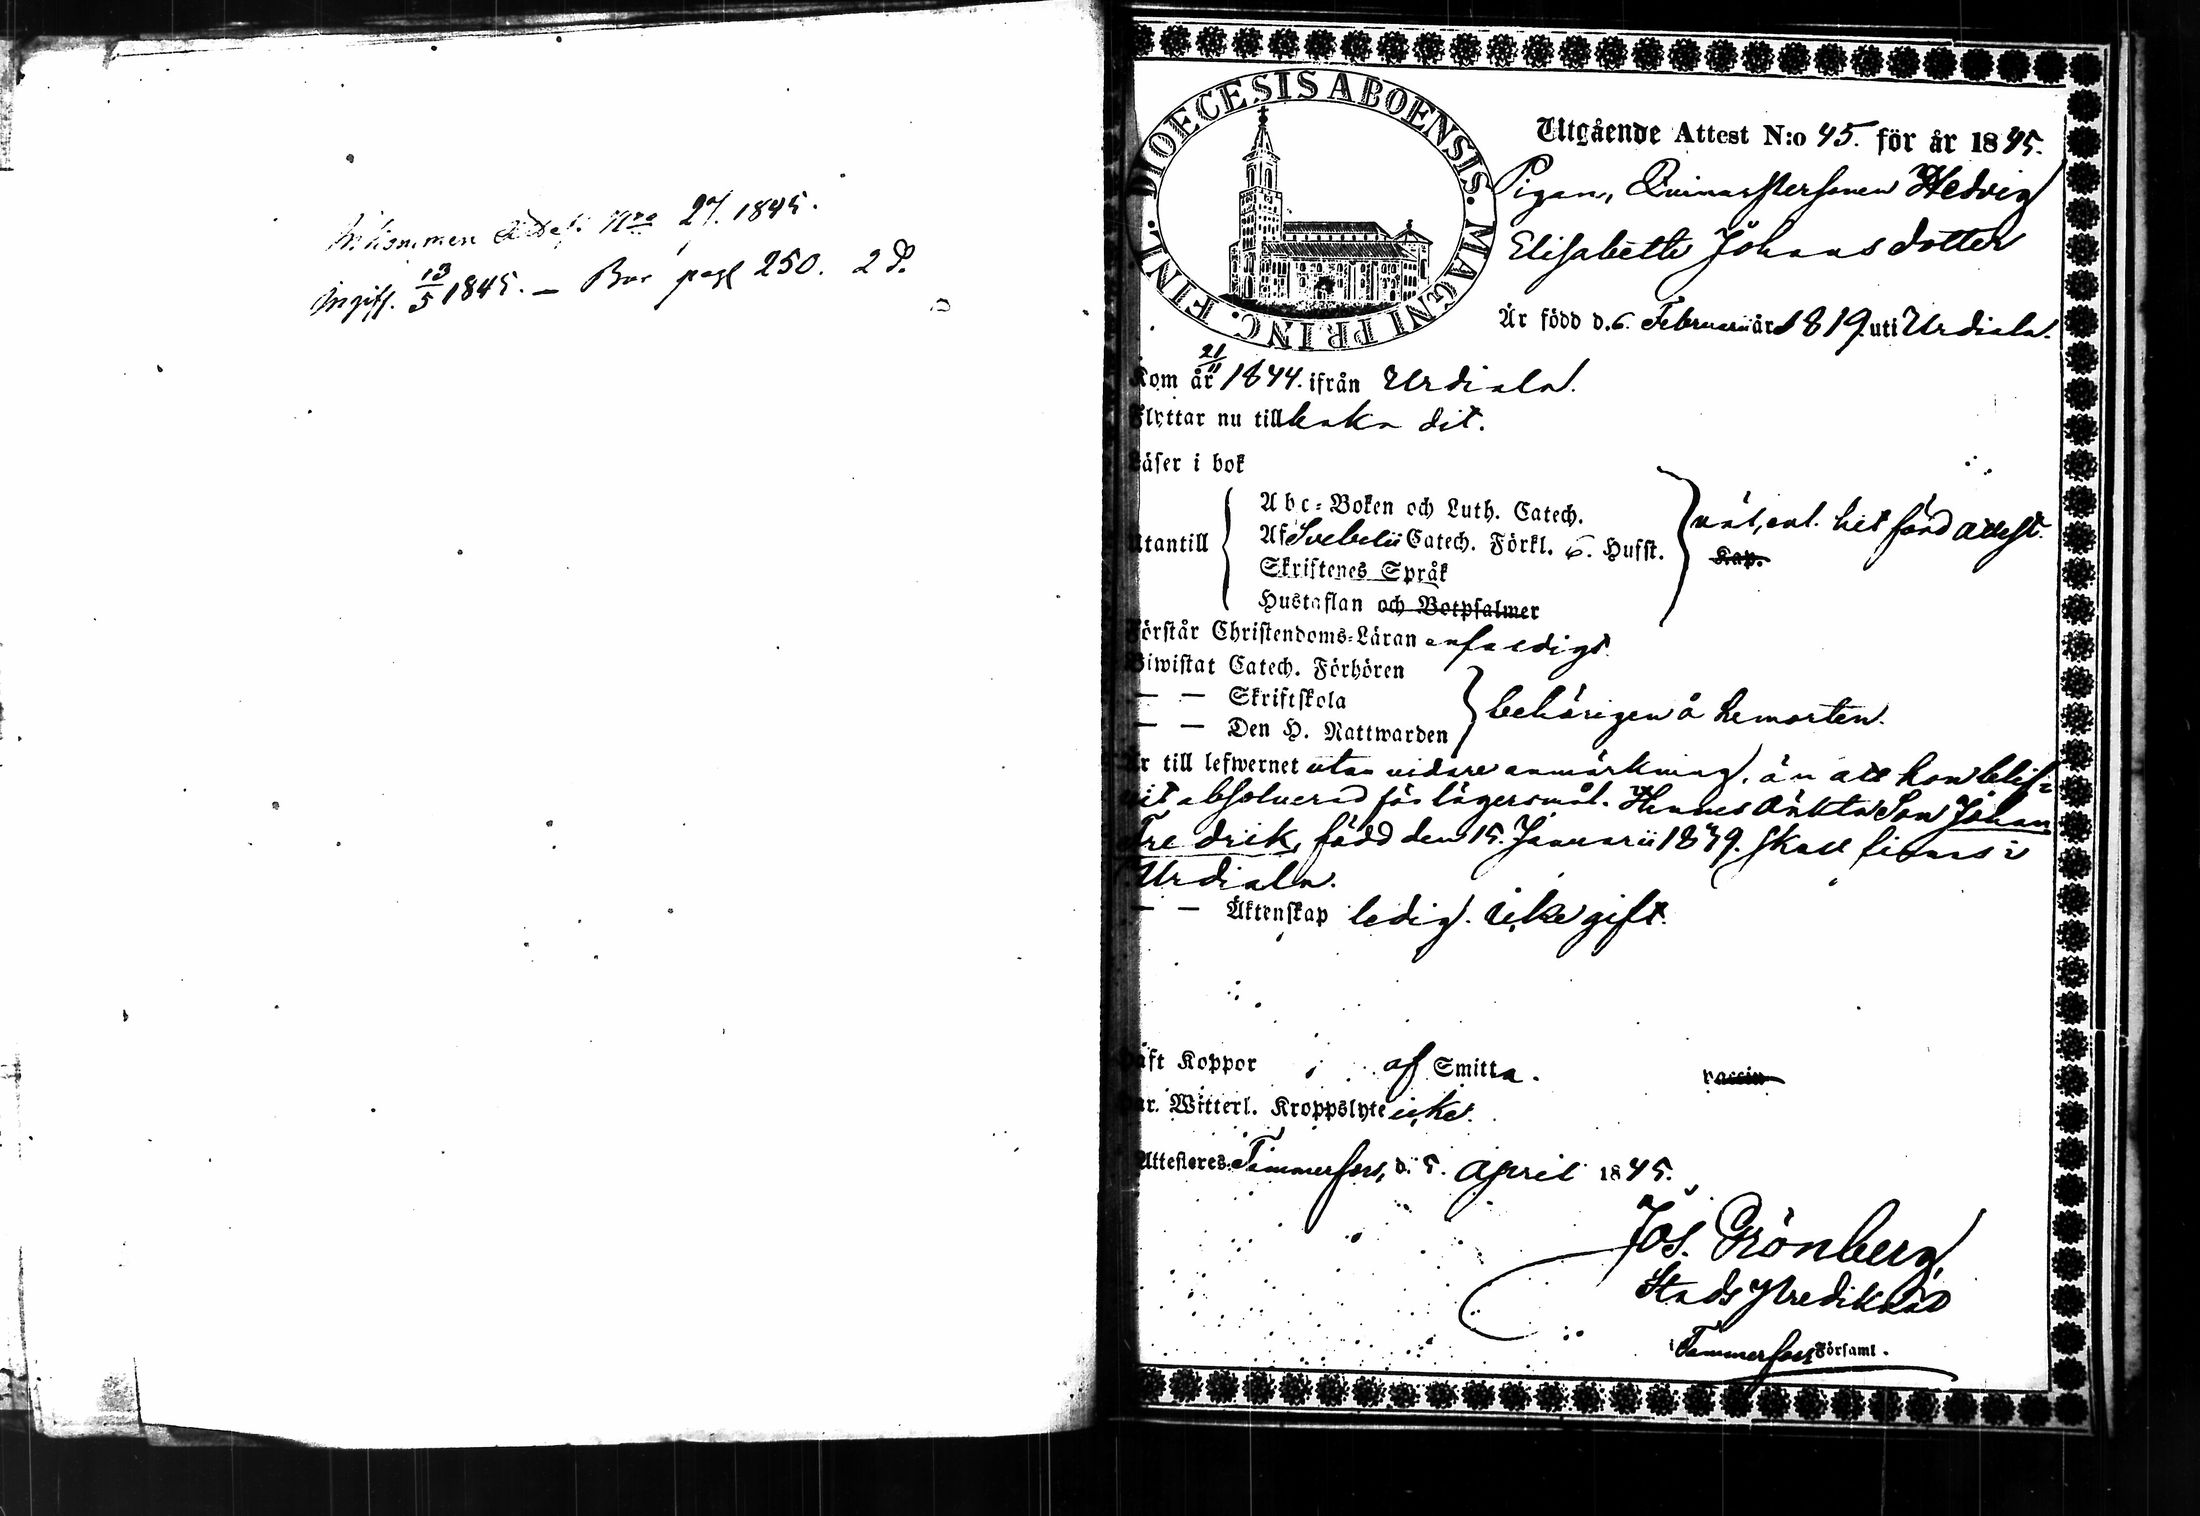 Inkommen Attest Nro 27. 1845.
Ingift. 13/5 1845. — Boc pag 250. 2 D.
DIOECESIS ABOENSIS. MAGNI PRINC. FINL.
Utgående Attest N:o 45. för år 1845.
Pigan, Qvinnspersonen Hedvig
Elisabetha Johansdotter
Är född d. 6. Februarii år 1819. uti Urdiala.
Kom år 21/11 1844. ifrån Urdiala.
Flyttar nu tillbaka dit.
Läser i bok
Utantill
Abc-Boken och Luth. Catech.
Af Svebelii Catech. Förkl. 6. Hufst.
Skriftenes Språk
Hustaflan och Botpsalmer
väl, enl. hit förd attest.
Kap.
Förstår Christendoms-Läran enfaldigt.
Biwistat Catech. Förhören
— — Skriftskola
— — Den H. Nattwarden
behörigen å hemorten.
Är till lefwernet utan vidare anmärkning, än att hon blif-
vit absolverad för lägersmål. Hennes oäkta Son Johan
Fredrik, född den 15. Januarii 1839. skall finnas i
Urdiala.
— — Äktenskap ledig. icke gift.
Haft Koppor af Smitta. vaccin
Har. Witterl. Kroppslyte icke.
Attesteres. Tammerfors, d. 5. April 1845.
Jos. Grönberg,
StadsPredikant
i Tammerfors Församl.